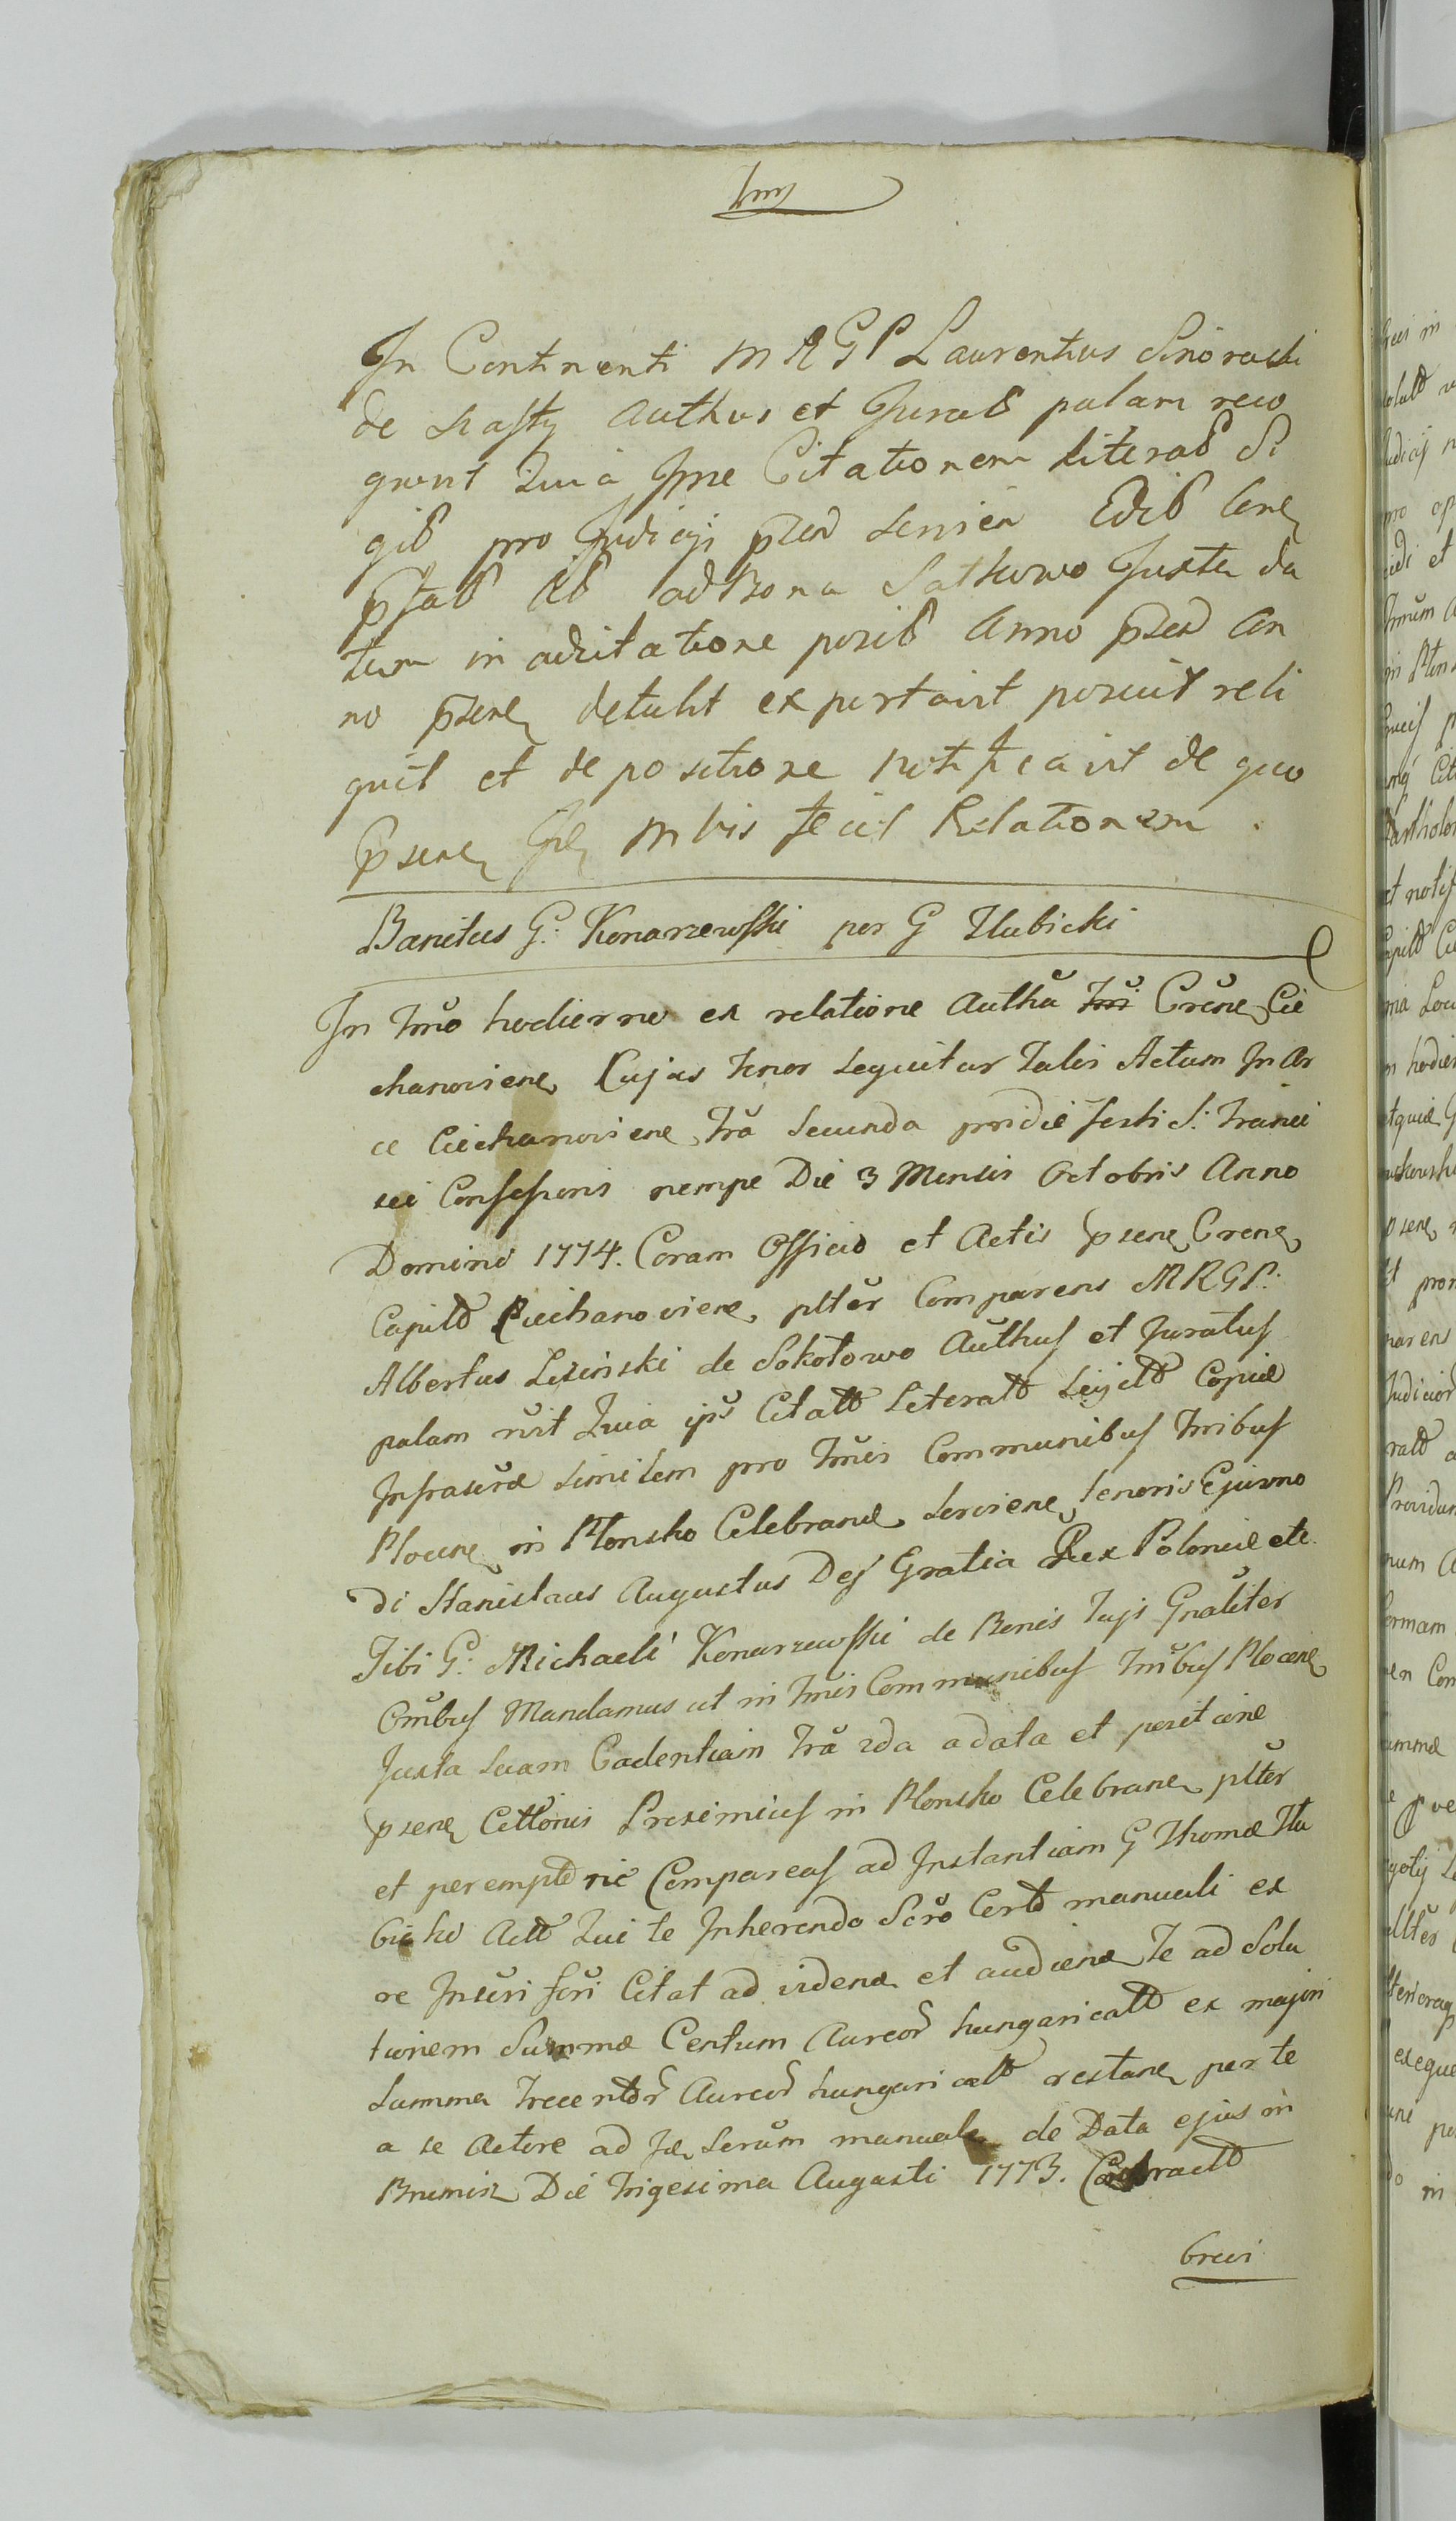 In Continenti MRGP Laurentius
de Authus et Jurat palam reco
gnovit Quia Citationem literat Si
git pro Judicijs
ad Bona Sathowo Juxta da
tum in adcitatione posit Anno an
no psene detulit exportavit posuit reli
quit et de positione notificavit de quo
psene fecit Relationem.
Banitus G: Konarzewski per G Hubicki
In Trno hodierno ex relatione Authu Trri Crene Cie
chanoviene Cujus tenor sequitur Talis Actum In Ar
ce Ciechanoviene fra Secunda pridie festi S. Franci
sci Confessoris nempe Die 3 Mensis Octobris Anno
Domini 1774. Coram Officio et Actis psene Crene
Capitl Ciechanoviene plter Comparens MRGP.
Albertus Liziński de Sokołowo Authus et Juratus
palam rvit Quia ips Citatt Literatt Sigitt Copiæ
Infrascræ similem pro Trmis Communibus Tribus
Plocene in Płonsko Celebrand Serviene tenoris Ejusmo
di Stanislaus Augustus Dej Gratia Rex Poloniæ etc.
Tibi G. Michaeli Konarzewski de Bonis Tujs Gnaliter
Omibus Mandamus ut in Trmis Communibus Trribus Plocene
Juxta suam Cadentiam fra 2da a data et positione
psene Cittonis Proximius in Płonsko Celebrane plter
et peremptorie Compareas ad Instantiam G Thomæ Hu
bicki Actt Qui te Inherendo Scro Certo manuali ex
re Inscri scri Citat ad videne et audiene Te ad Solu
tionem Summæ Centum Aureor hungaricalt ex majori
Summa Trecentor Aureor hungaricalt restane per te
a se Actore ad manuale de Data ejus in
Die Trigesima Augusti 1773. Contractt
brevi